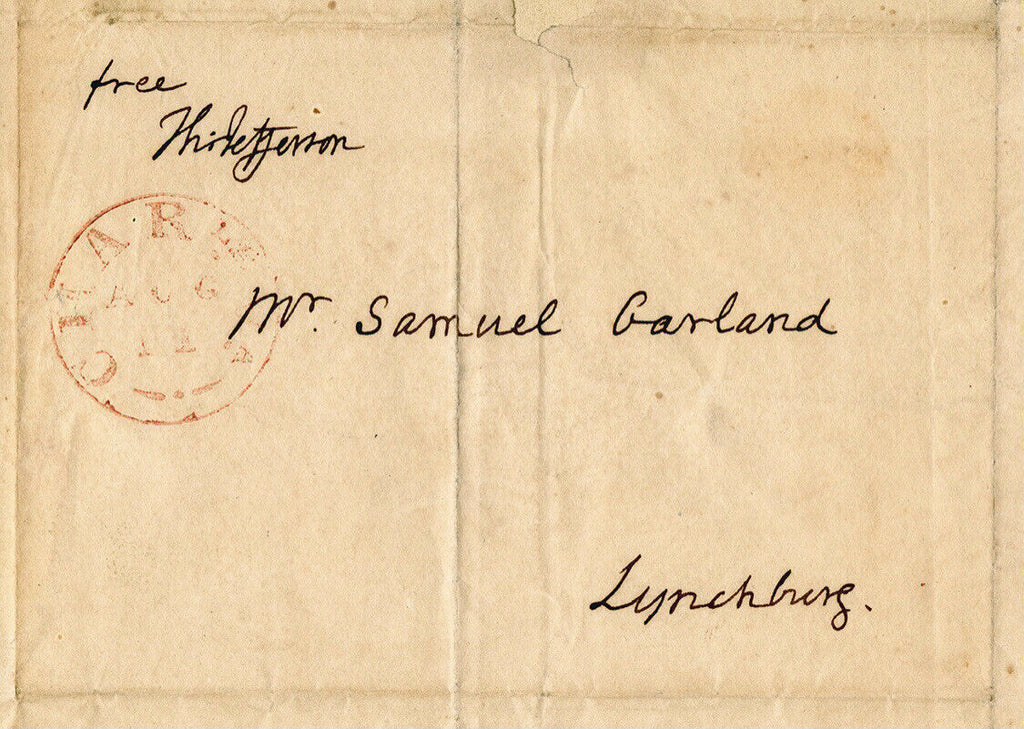 free
Th:Jefferson
CHARLE
AUG
11
Mr. Samuel Garland
Lynchburg.